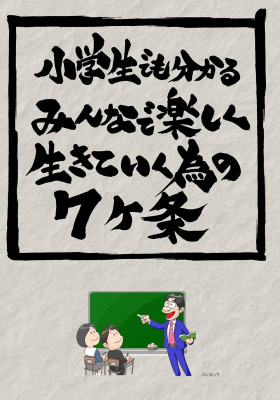 小学生でも分かる
みんなで楽しく
生きていく為の
7ヶ条